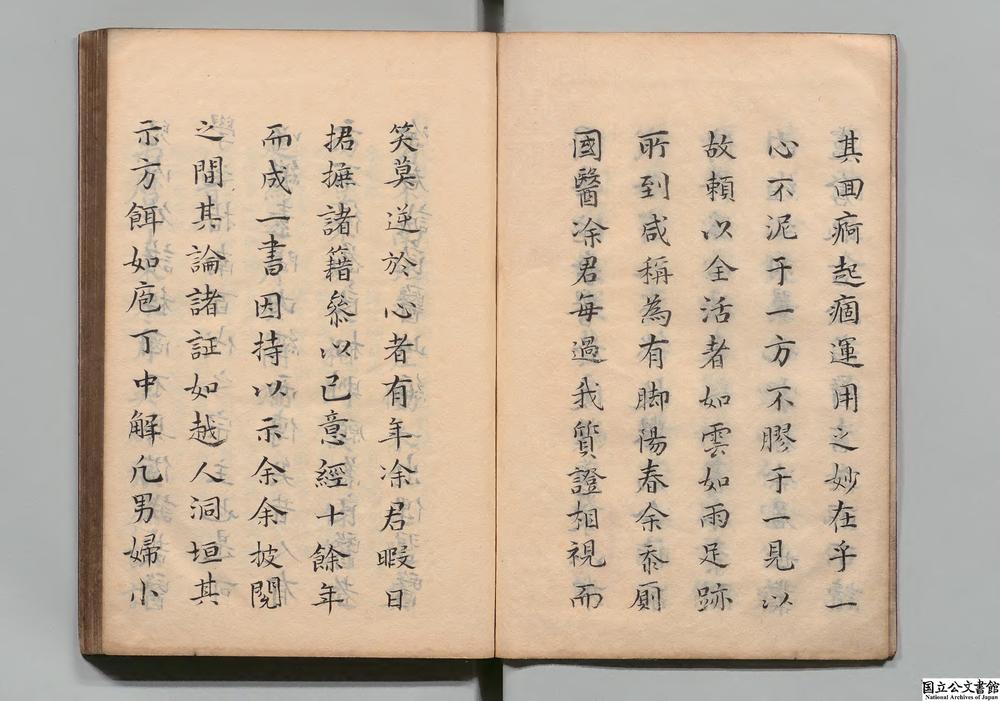 其回痾起痼運用之妙在乎一
心不泥于一方不膠于一見以
故頼以全活者如雲如雨足跡
所到咸稱為有脚陽春余忝厠
國醫凃君每過我質證相視而
笑莫逆於心者有年凃君暇日
捃摭諸籍叅以已意經十餘年
而成一書因持以示余余披閲
之間其論諸証如越人洞垣其
示方餌如庖丁中解凢男婦小
国立公文書館
National Archives of Japan